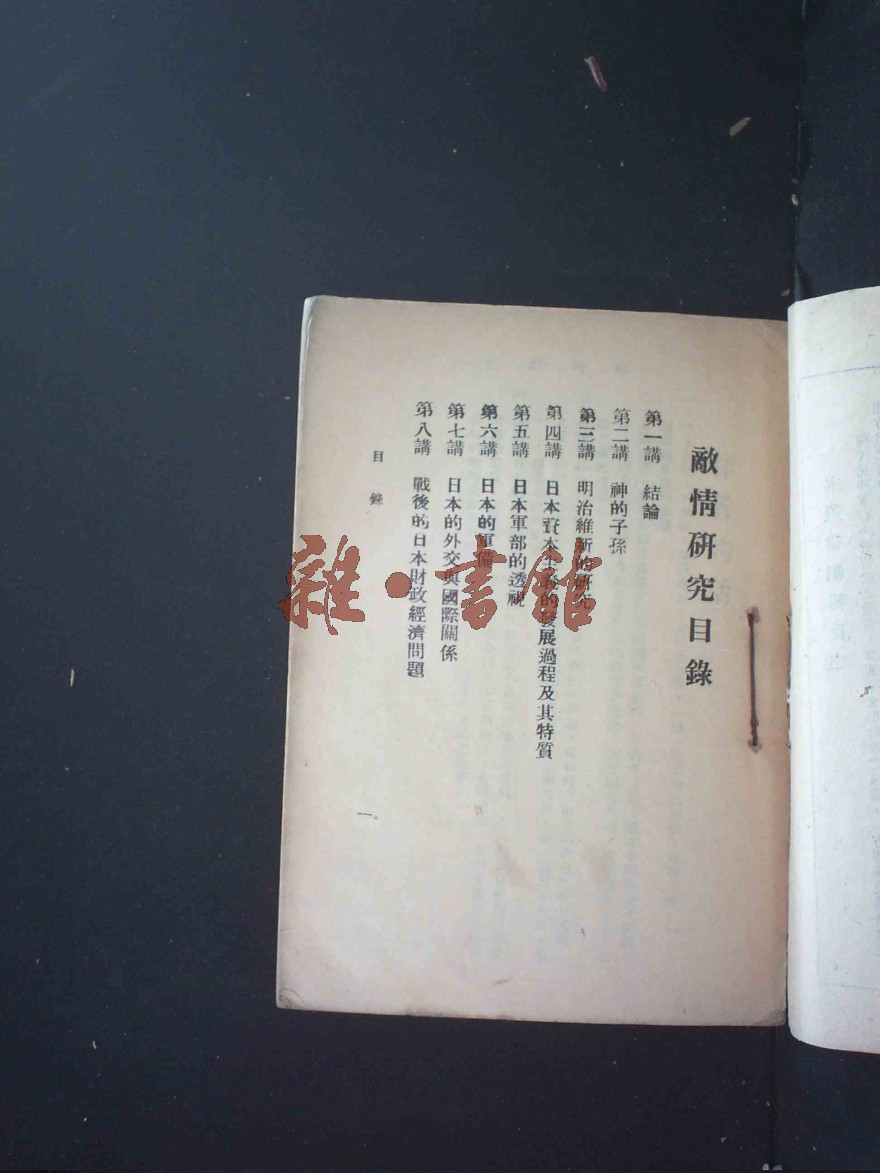 敵情研究目錄
第一講 結論
第二講 神的子孫
第三講 明治維新的研究
第四講 日本資本主義的發展過程及其特質
第五講 日本軍部的透視
第六講 日本的軍備
第七講 日本的外交與國際關係
第八講 戰後的日本財政經濟問題
目錄
一
雜·書館